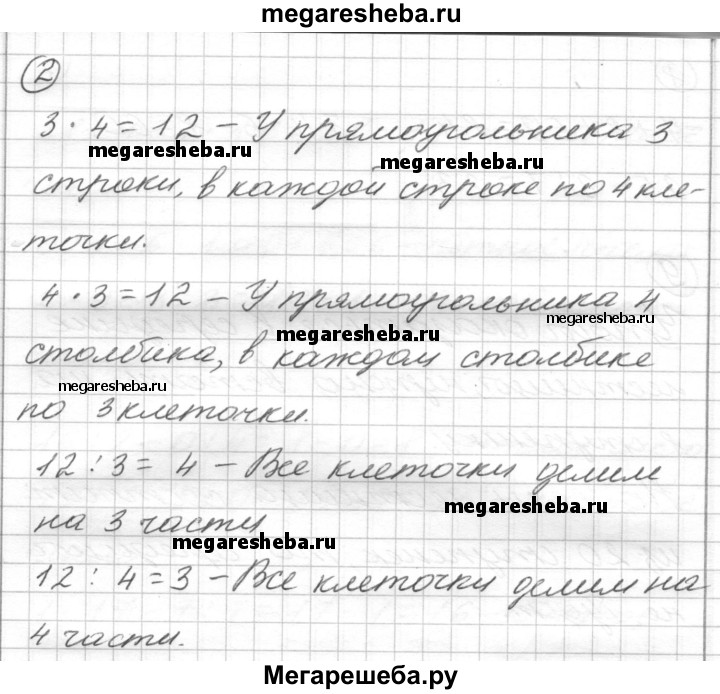 megaresheba.ru
2
3 · 4 = 12 – У прямоугольника 3
megaresheba.ru
megaresheba.ru
строки, в каждой строке по 4 кле-
точки.
4 · 3 = 12 – У прямоугольника 4
megaresheba.ru
megaresheba.ru
столбика, в каждом столбике
megaresheba.ru
по 3 клеточки.
12 : 3 = 4 – Все клеточки делим
megaresheba.ru
на 3 части
megaresheba.ru
12 : 4 = 3 – Все клеточки делим на
4 части.
Мегарешеба.ру